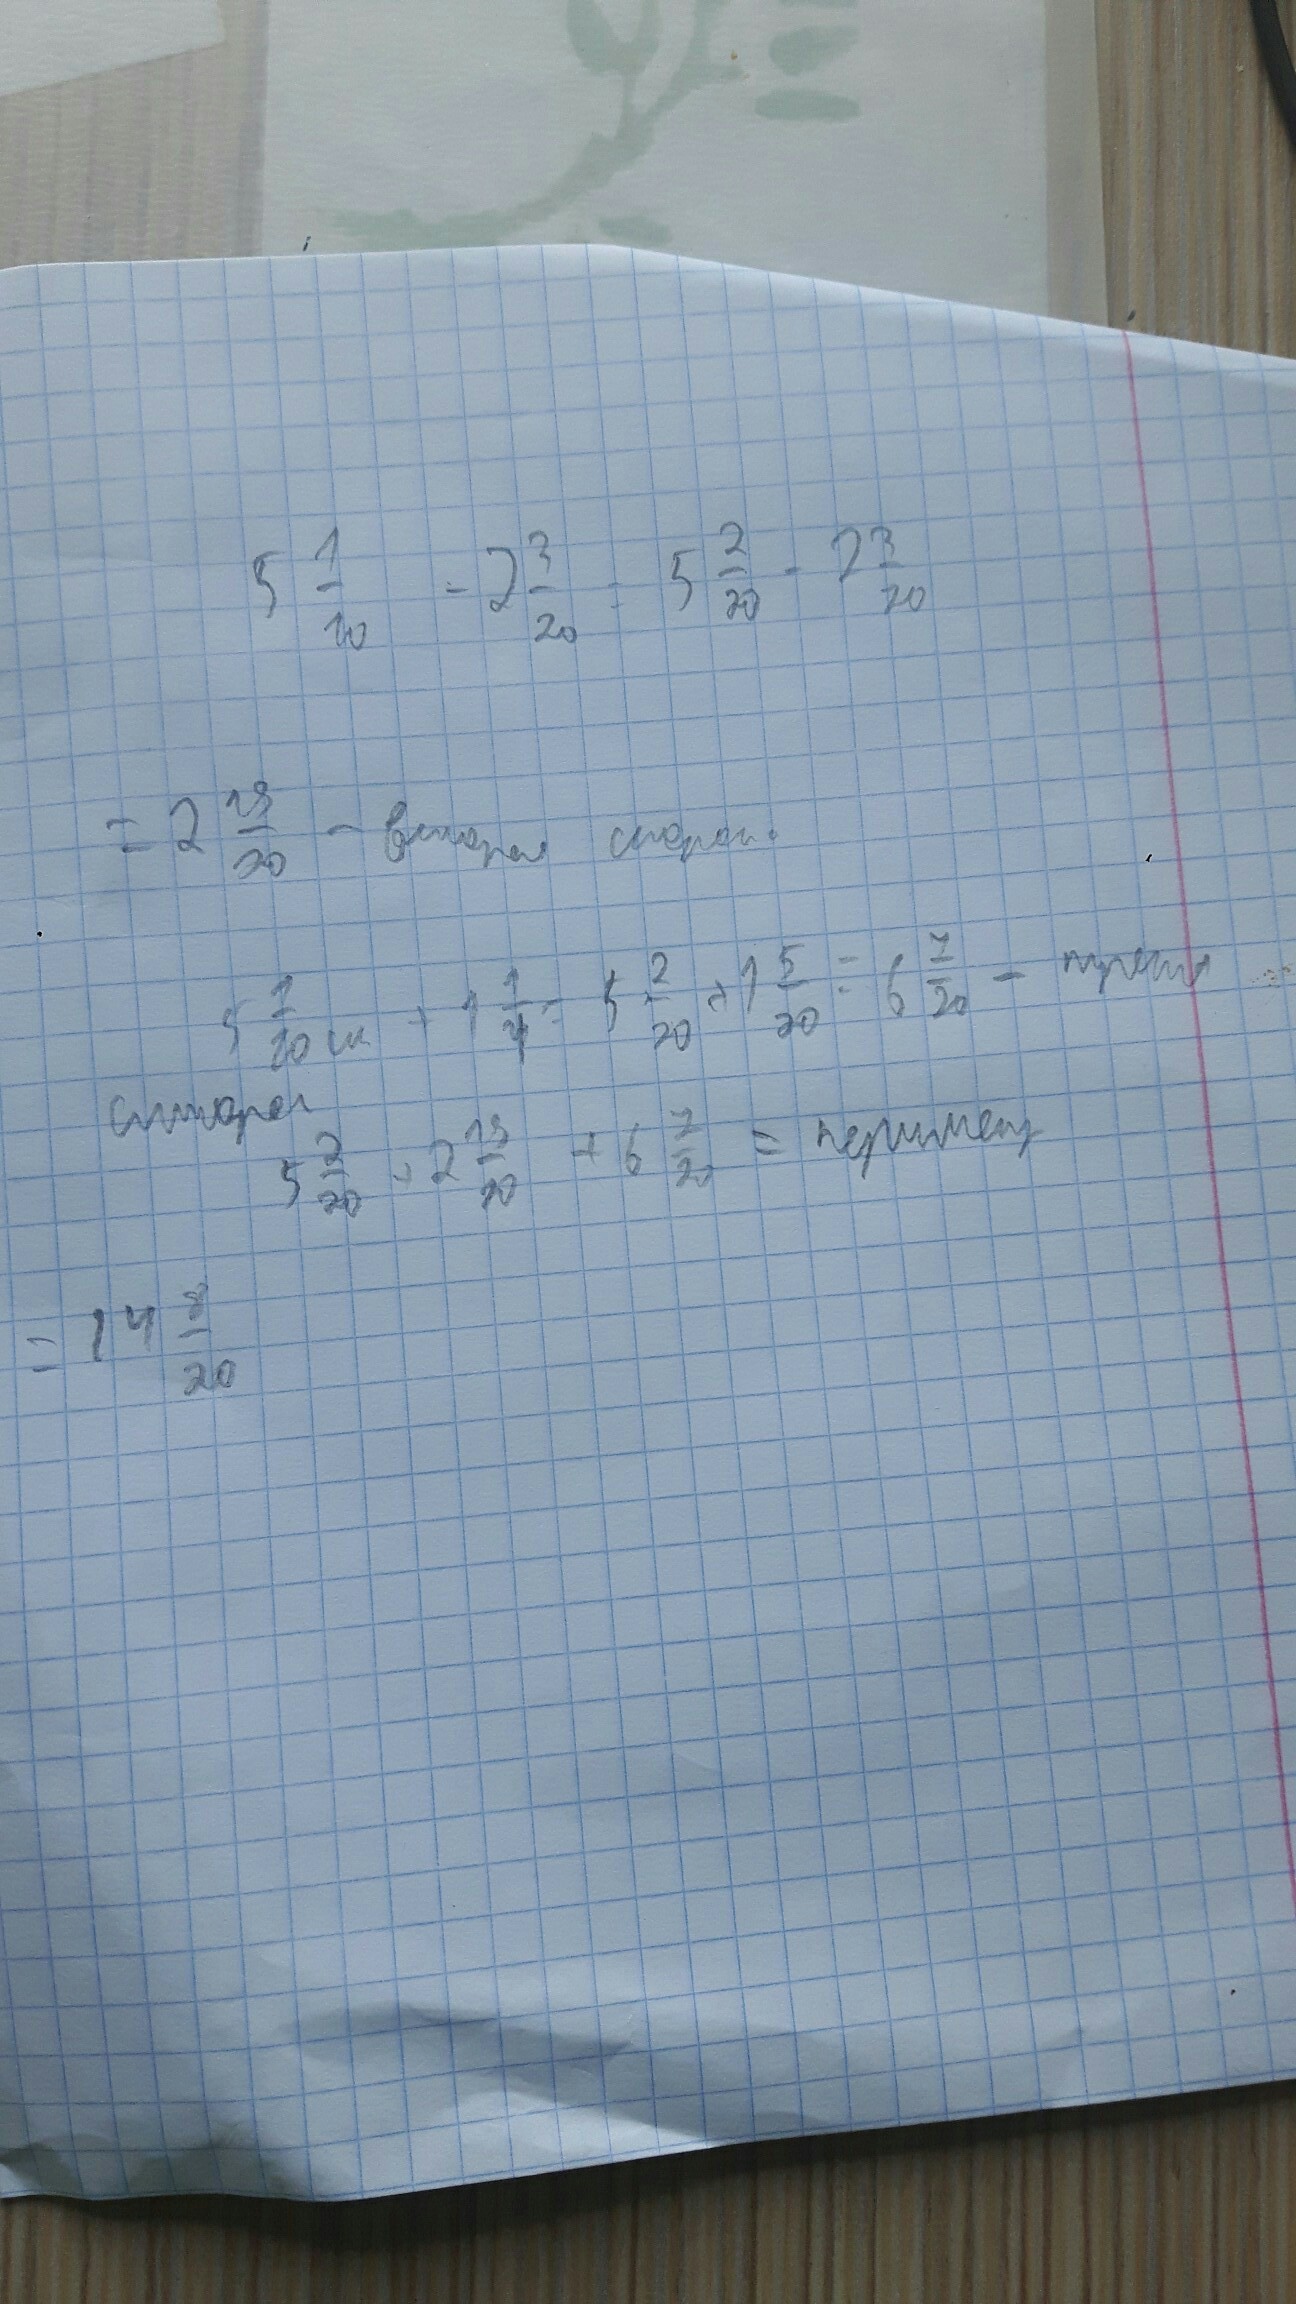 5 1/10 - 2 3/20 = 5 2/20 - 2 3/20
= 2 19/20 - вторая сторон.
5 1/10 см + 1 1/4 = 5 2/20 + 1 5/20 = 6 7/20 -
сторон
5 2/20 + 2 19/20 + 6 7/20 = периметр
= 14 8/20